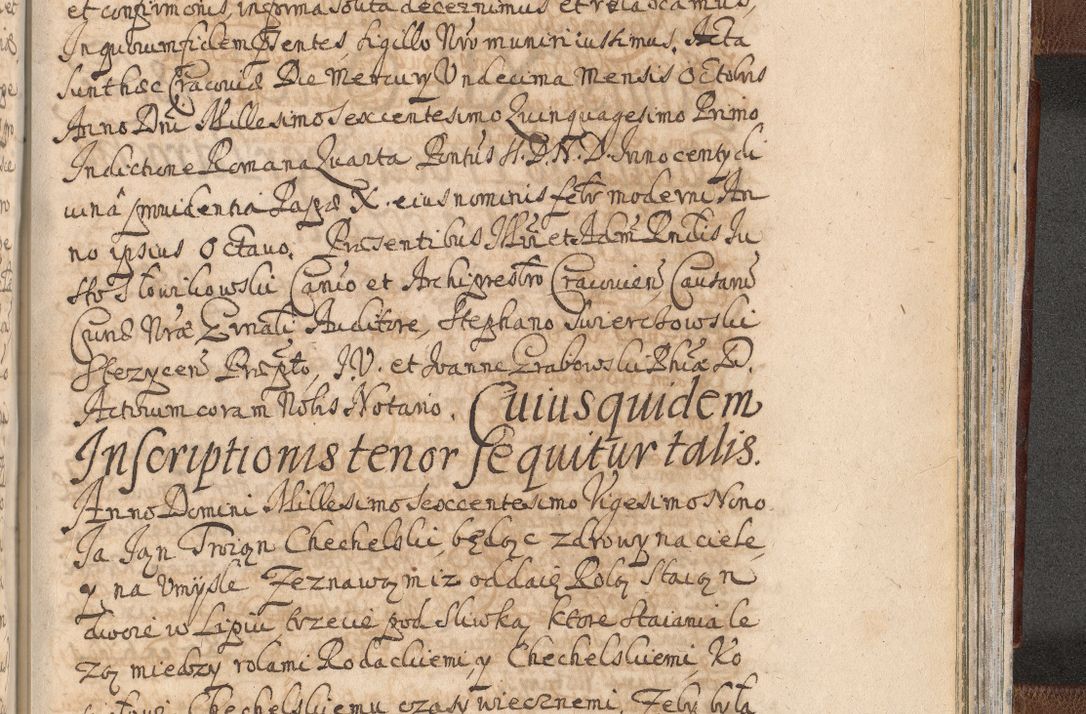 et confirmonis, in forma solita decernimus et relaxamus,
In quorum fidem Psentes, Sigillo Nro muniri iussimus. Acta
sunt haec Cracoviæ Die Mercurÿ Undecima Mensis Octobris
Anno Dni Millesimo Sexcentesimo Quinquagesimo Primo,
Indictione Romana Quarta Pontus S. D. N. D. Innocentÿ di
uinâ prouidentia Papæ X. eius nominis felr moderni An
no ipsius Octauo. Præsentibus Illri et Adm Rndis Ju
sto Słowikowski Canco et Archipresbro Cracovien, Causarum
Curiæ Nræ Gnali Auditore, Stephano Swierchowski
Stezycen Præpto, J. V. et Joanne Grabowski Phiæ D.
Actorum coram Nobis Notario. Cuius quidem
Inscriptionis tenor sequitur talis.
Anno Domini Millesimo Sexcentesimo Vigesimo Nono
Ja Jan Troian Chechelski, będąc zdrowy na ciele,
y na Vmysle Zeznawam iz oddaię Rolą Staian
dwoie w Lipiu, trzecie pod sliwką, ktore staiania le
zą miedzy rolami Rodackiemi, y Chechelskiemi, Ko
Chechelskiemu czasy wiecznemi, Zeby była